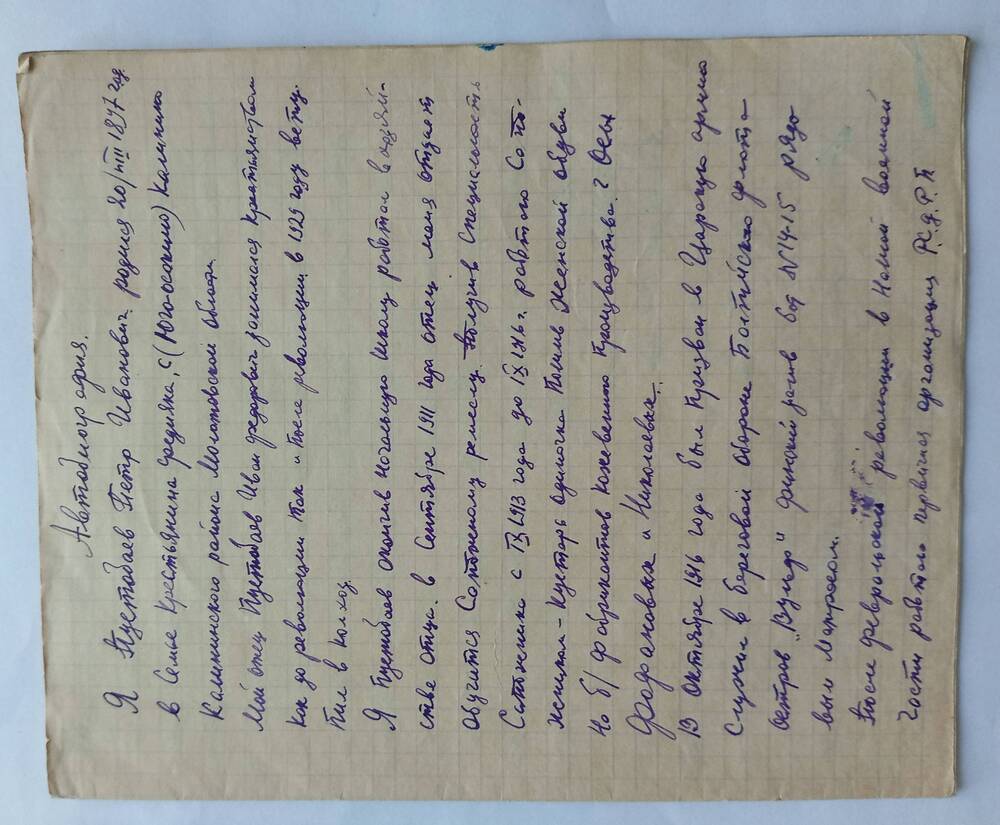 Автобиография.
Я Пустобаев Петр Иванович родился 20/VIII 1897 год.
в Семье Крестьянина средняка, с (Юго-осокино) Калинино
Калининского района Молотовской области
Мой отец Пустобаев Иван Федорович занимался крестьянством
как до революции так и После революции в 1929 году всту-
пил в колхоз.
Я Пустобаев окончив начальную школу работал в хозяй-
стве отца. в Сентябре 1911 года отец меня отдает
обучится Сапожному ремеслу. Получив Специальность
Сапожника с IX 1913 года до IX 1916 г. работаю Сапо-
жником-Кустарь одиночка Пошив женской обуви
но б/ фабрикантов кожевенного Производства г Осы
Фоодоновых и Николаевых.
В Октябре 1916 года был Призван в Царскую армию
Служил в береговой обороне Балтийского флота
остров „Вульф" финский залив бат №14-15 рядо
вым Матросом.
После февральской революции в Нашей военной
части работал первичная организация Р.С.Д.Р.П